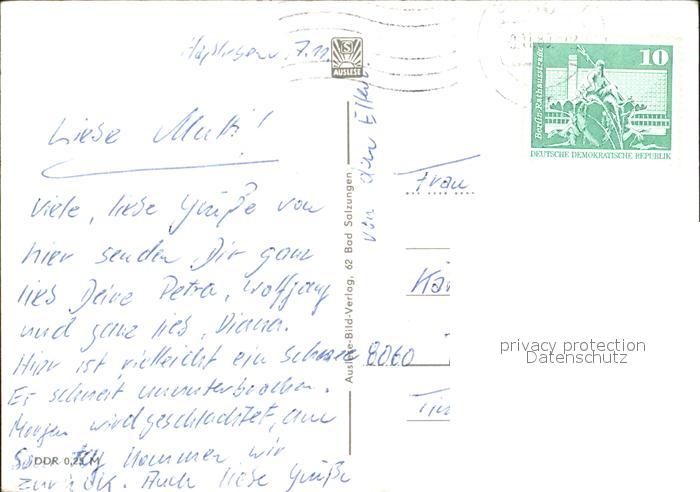 7.11.
S
AUSLESE
10
Berlin·Rathausstraße
DEUTSCHE DEMOKRATISCHE REPUBLIK
Liebe Mutti!
Viele, liebe Grüße von
hier senden Dir ganz
lieb Deine Petra, Wolfgang
und ganz lieb, Diana.
Hier ist vielleicht ein Schnee
Es schneit ununterbrochen.
Morgen wird geschlachtet, am
kommen wir
zurück. Auch liebe Grüße
von den Eltern
DDR 0,25 M
Auslese-Bild-Verlag, 62 Bad Salzungen
Frau
8060
privacy protection
Datenschutz